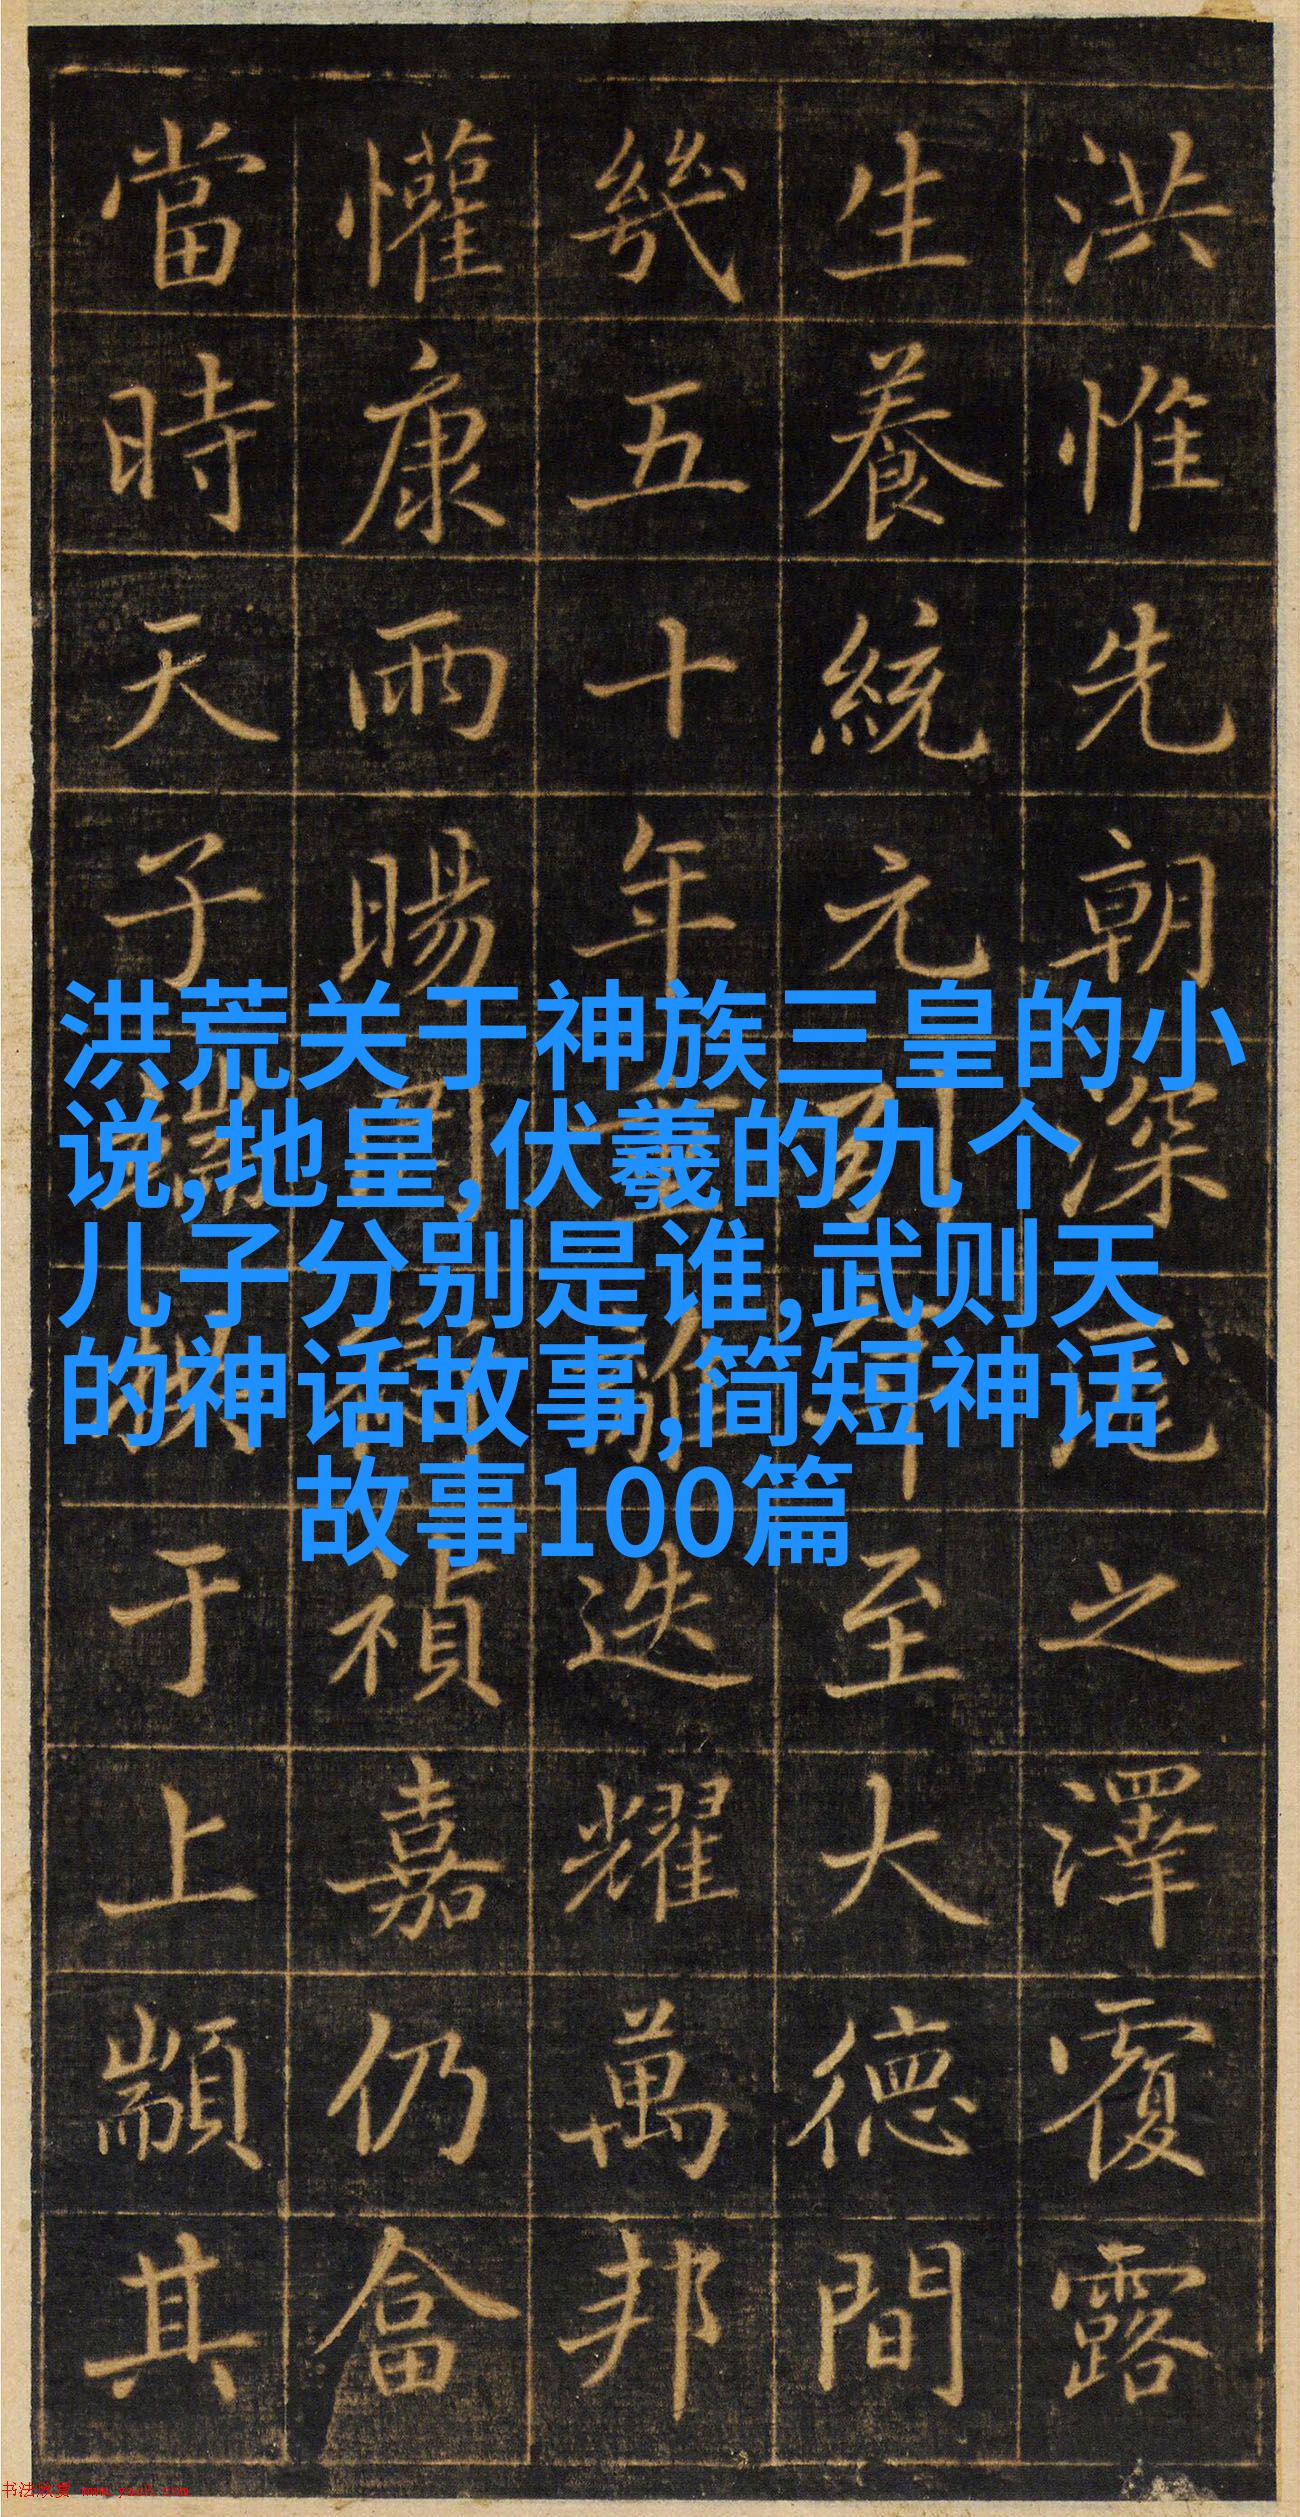 洪惟先朝深之澤覆露
生養統元至大德間
幾五十年重離迭耀萬邦
懽康雨暘禎嘉仍畣
當時天子于上顒其
洪荒关于神族三皇的小
说,地皇,伏羲的九个
儿子分别是谁,武则天
的神话故事,简短神话
故事100篇
书法欣赏 www.yac8.com